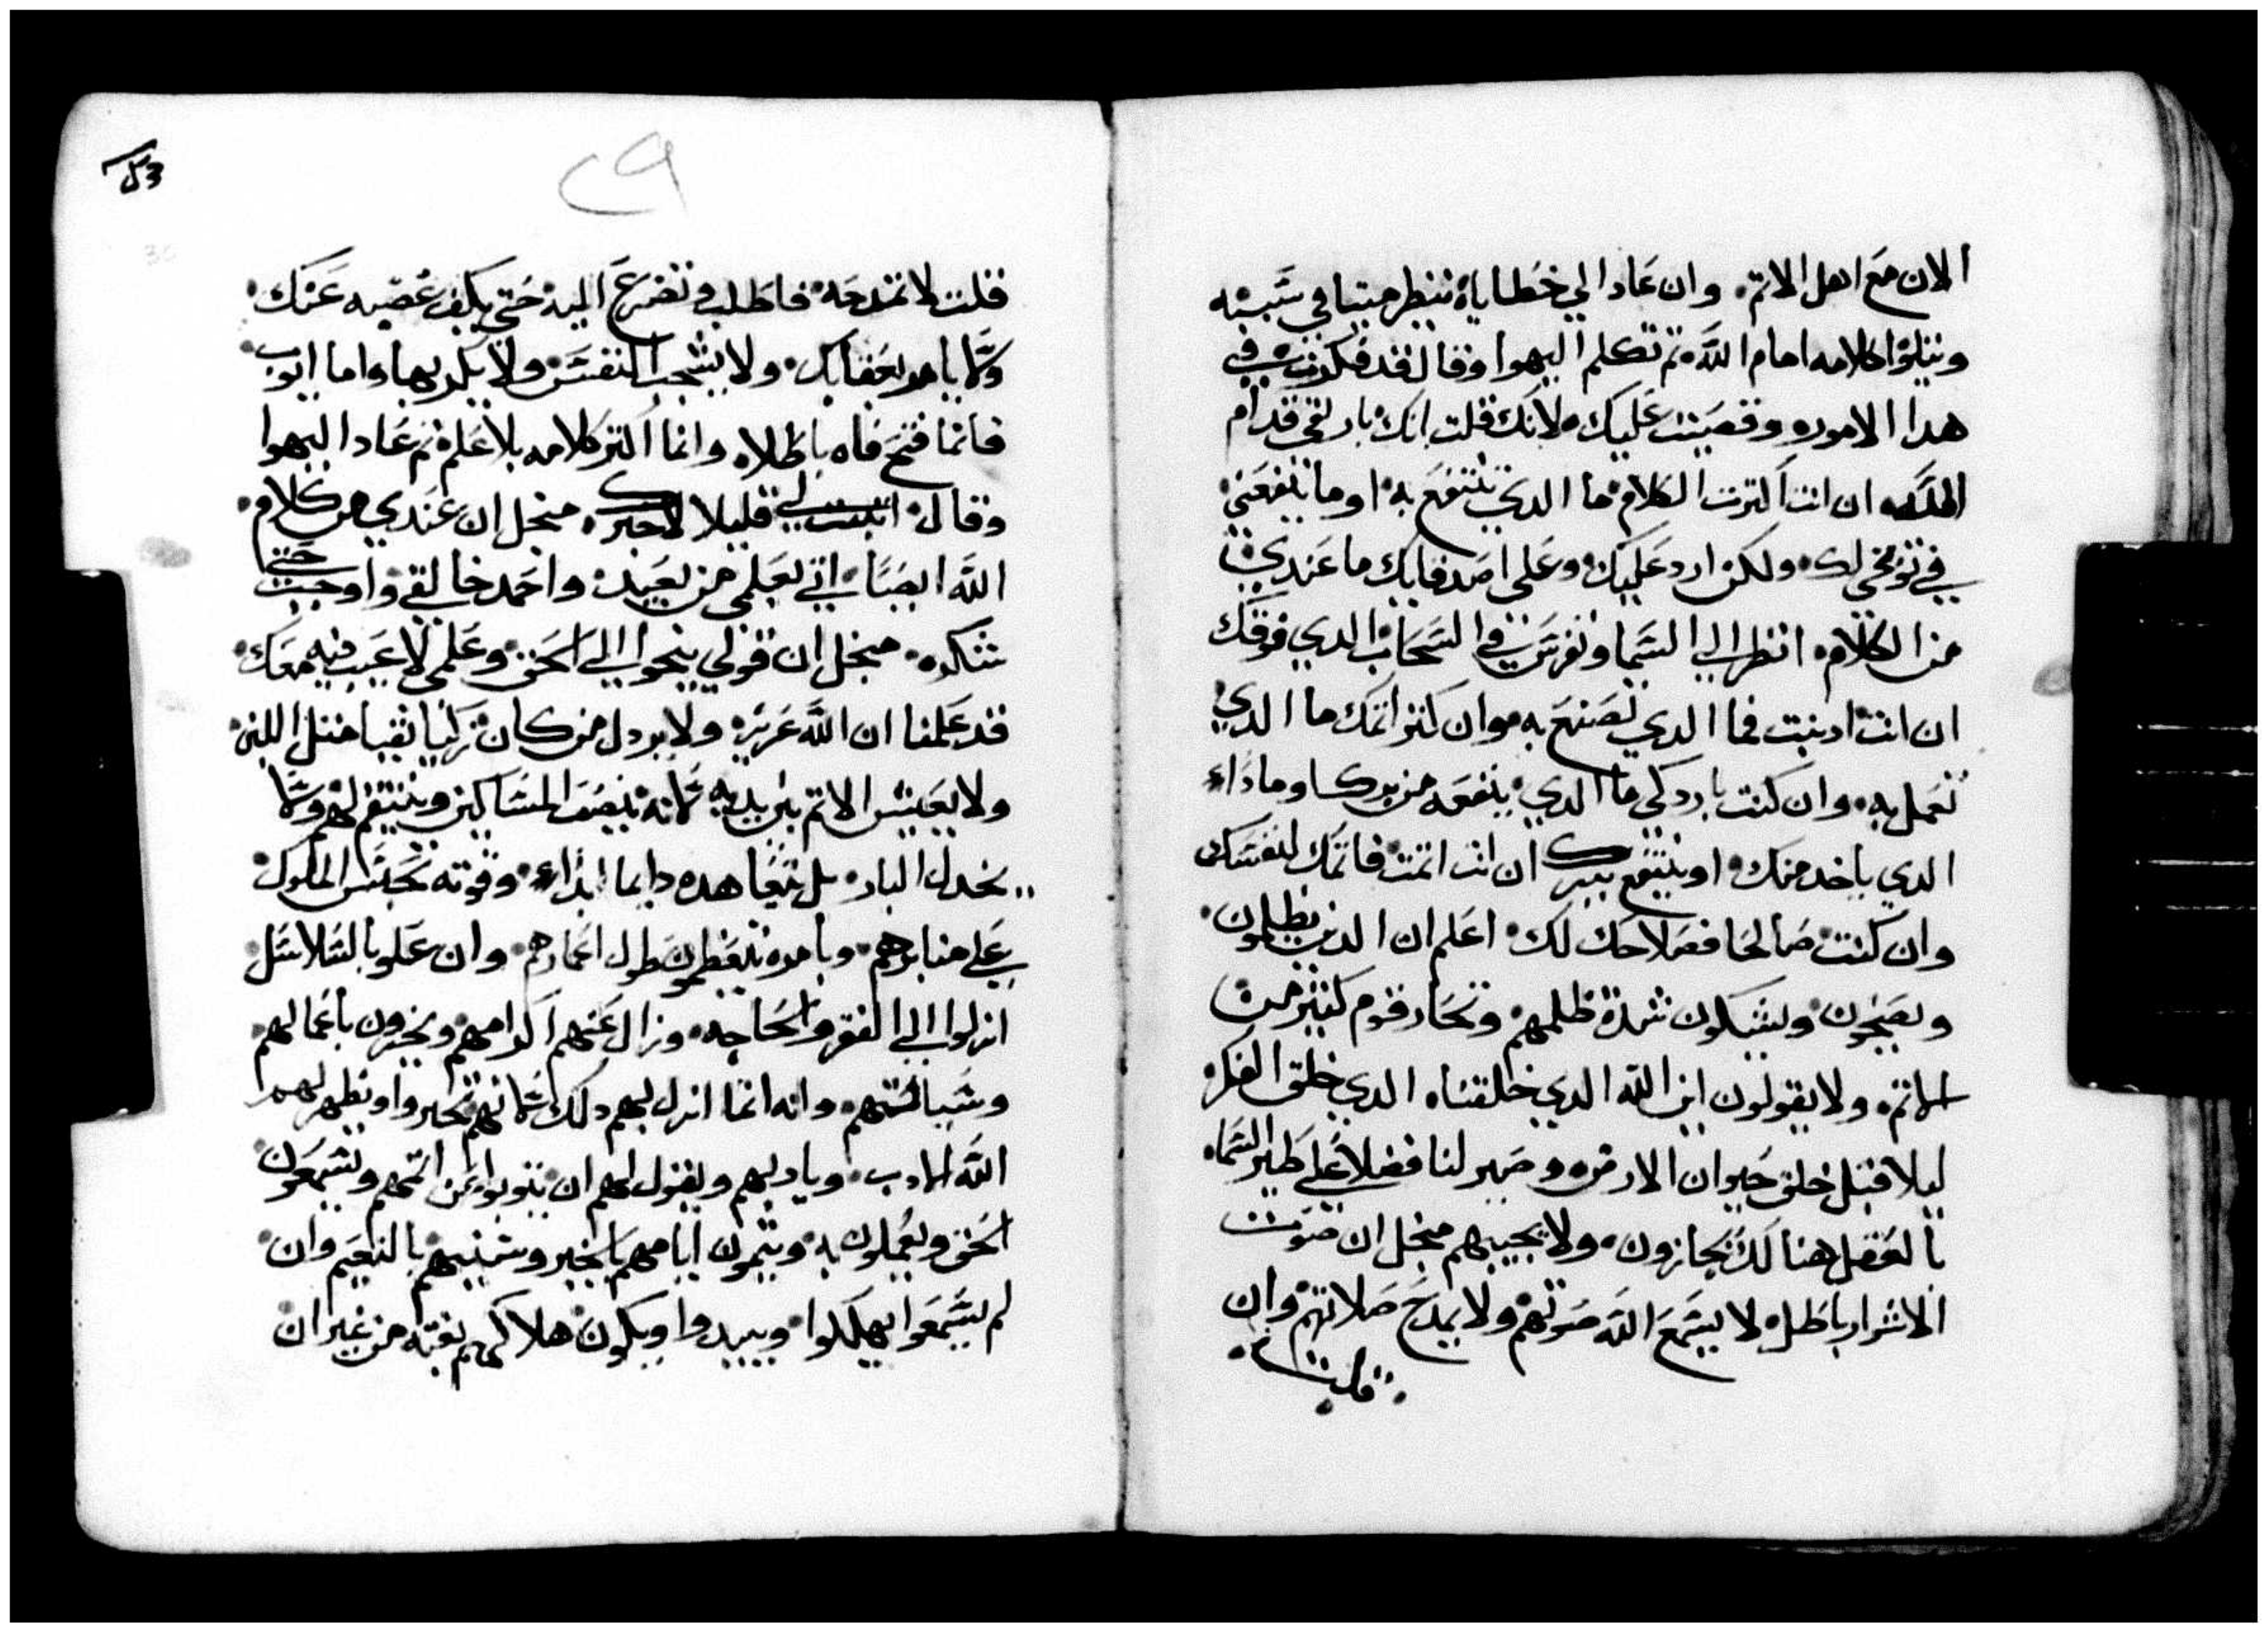 الان مع اهل الاتم۰ وان عاد الي خطاياه ننظر ميتا في شبىه
ويتلوا كلامه امام اللّه۰ تم تكلم اليهوا وقال قد فكرت في
هدا الامور۰ وقصيت عليك۰ لانك قلت انك بار لقي قدام
اللّه۰ ان انت اكترت الكلام۰ ما الدي تنتفع به۰ او ما ينفعني
في توبخي لك۰ ولكن ارد عليك۰ وعلى اصدقايك ما عندي
من الكلام۰ انظر الي السما وتفرس في السحاب الدي فوقك
ان انت ادنبت فما الدي تصنع به۰ وان كتر اتمك ما الدي
تعمل به۰ وان كنت بار زكي ما الدي ينفعه من برك۰ او ما داء
الدي ياخد منك۰ او ينتفع ببرك ان انت اتمت فاتمك لنفسك
وان كنت صالحا فصلاحك لك۰ اعلم ان الدين يظلمون
ويصيحون ويشكون شدة ظلمهم۰ وتحار قوم كتير من
الاتمه ولا يقولون اين اللّه الدي خلقنا۰ الدي خلق الفكر
ليلا قبل خلق حيوان الارض۰ وصير لنا فضلا علي طير السما۰
بالعقل هنالك يجازون۰ ولا يجيبهم منجل ان صوت
الاشرار باطل۰ لا يسمع اللّه صوتهم ولا يمدح صلاتهم وان
قلت
٢٩
قلت لا تمدحه۰ فاطلب وتضرع اليه حتي يكف غضبه عنك
ولا يامر بعقابك۰ ولا يشجب النفس ولا يكدبها۰ واما ايوب
فانما فتح فاه باطلا۰ وانما اكتر كلامه بلا علم۰ تم عاد اليهوا
وقال اتبت لي قليلا لاخبرك۰ منجل ان عندي من كلام
اللّه ايضا۰ اني بعلمي من بعيد۰ واحمد خالقي واوجب حتي
شكره۰ منجل ان قولي ينحوا الي الحق وعلمي لا عيب فيه معك
قد علمنا ان اللّه عزيز۰ ولا يردل من كان زكيا نقيا متل اللبن
ولا يعيش الاتم بين يديه لانه ينصف المساكين وينتقم لهم ولا
يخدل البار۰ بل يتعاهده دايما ابداء۰ وقوته تجلس الملوك
علي منابرهم۰ وبامره يتعظمون طول اعمارهم۰ وان علو بالسلاسل
انزلوا الي الفقر والحاجه۰ وزال عنهم اكرامهم ويخبرون باعمالهم
وسياتهم۰ وانه انما انزل بهم دلك لانهم تجبروا ويظهر لهم
اللّه الادب۰ ويادبهم ويقول لهم ان يتوبوا عن اتمهم ويسمعون
الحق ويعملون به۰ ويتمون ايامهم بالخير وسنيهم بالنعيم وان
لم يسمعوا يهلكوا۰ ويبيدوا ويكون هلاكهم بغته من غير ان